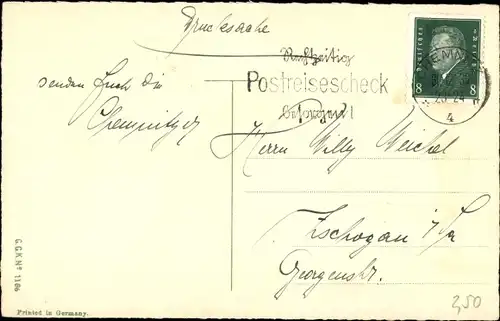 Drucksache
Rechtzeitig
Postreisescheck
besorgen!
Deutsches Reich
8 8
4
senden Euch die
Chemnitzer
Herrn Willy Weichel
Zschopau i/Sa
Georgenstr.
G.G.K. Nº 1106
Printed in Germany.
2,50